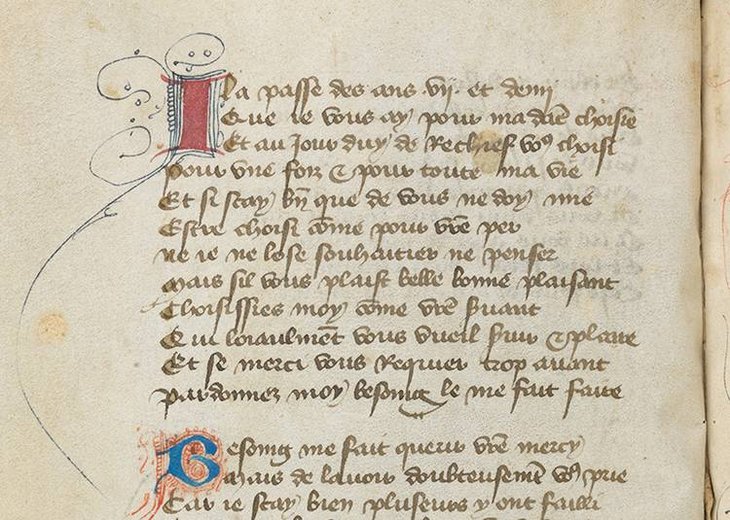 Il a passe des ans .vij. et demj
Que ie vous ay pour ma dāe choisie
Et au Jour duy de Rechief voꝰ choisi
Pour vne foiz & pour toute ma vie
Et si scay bn̄ que de vous ne doy mie
Estre choisi cōme pour vr̄e per
ne ie ne lose souhaitier ne penser
Mais sil vous plaist belle bonne plaisant
Choisissies moy cōme vr̄e s̄uant
Qui loiaulmēt vous vueil s̄uir & plaire
Et se merci vous Requier trop auant
pardonnez moy besoing le me fait faire
Besoing me fait querir vr̄e mercy
Mais de lauoir doubteusemēt voꝰ prie
Car ie scay bien pluseurs y ont failli